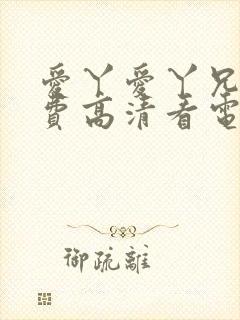 愛丫愛丫兄
費高清看電
御疏離